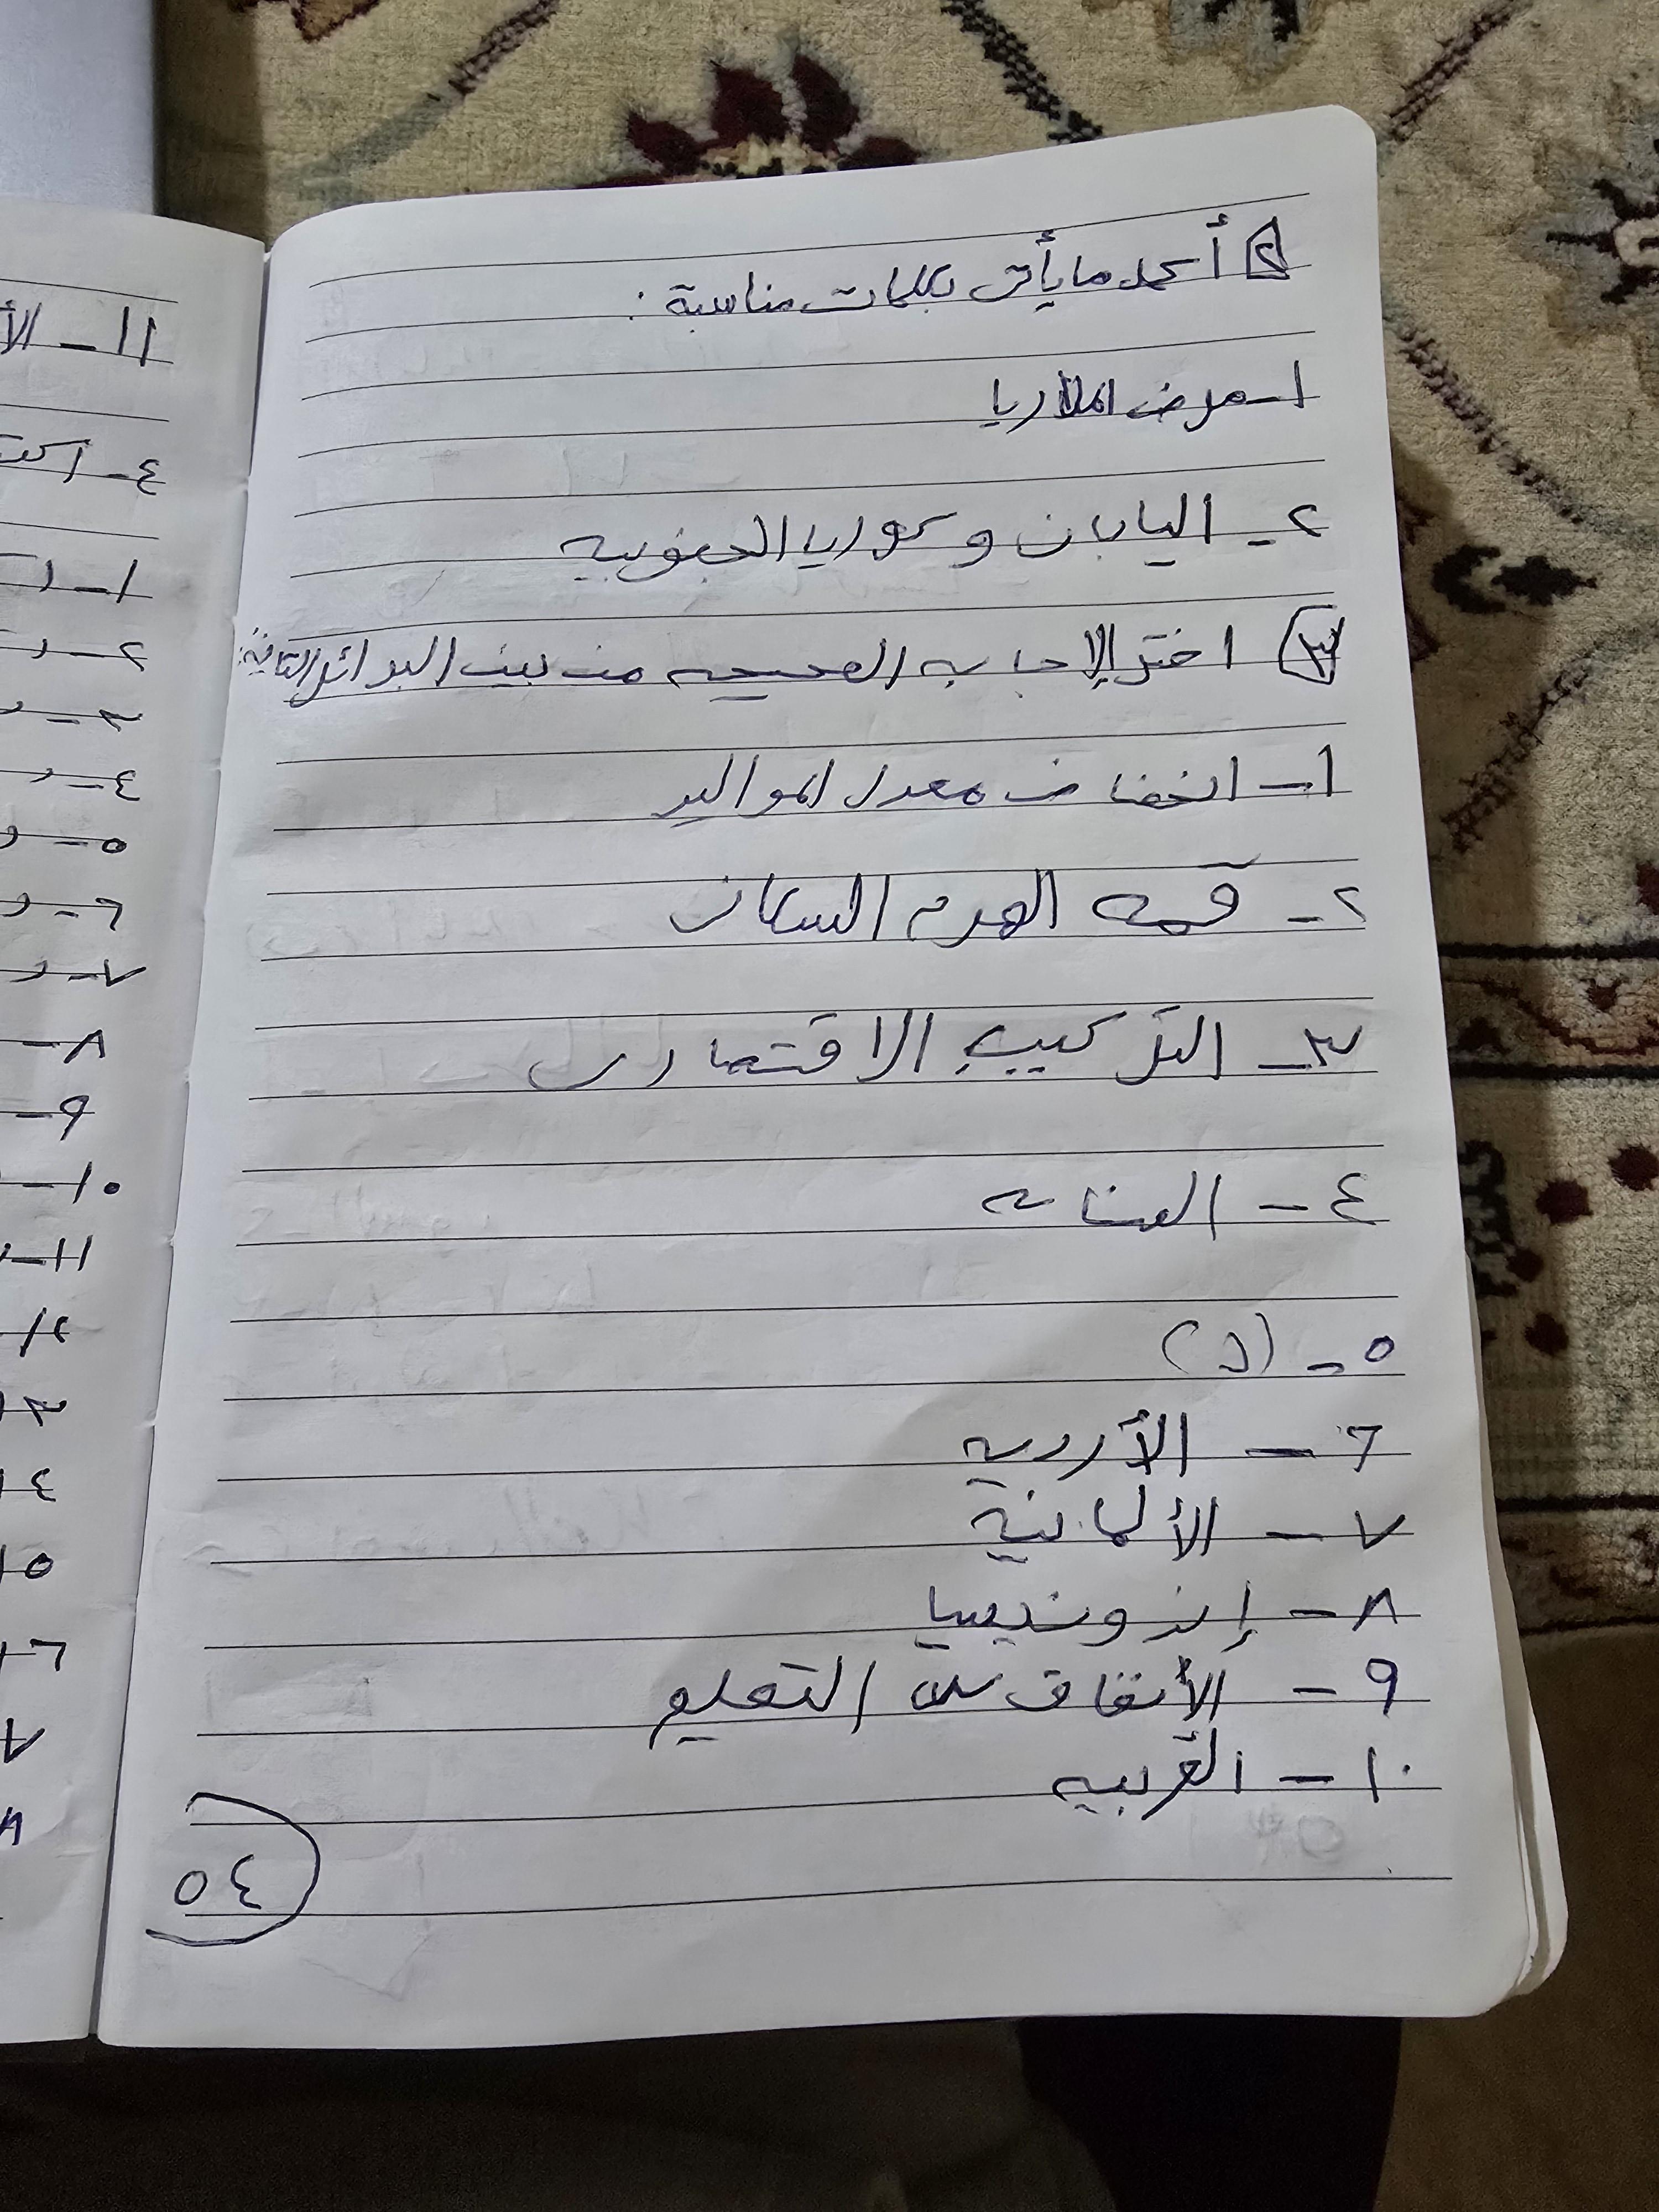 ٢ أكمل ما يأتي بكلمات مناسبة :
١- مرض الملاريا
٢- اليابان وكوريا الجنوبيه
٣ اختر الإجابه الصحيحه من بين البدائل التاليه:
١- انخفاض معدل المواليد
٢- قمه الهرم السكان
٣- التركيب الاقتصادي
٤- الصناعه
٥- (د)
٦- الأرديه
٧- الألمانية
٨- إندونيسيا
٩- الأنفاق على التعليم
١٠- العربيه
٤٥
١١- الأ
٤-
١-
٢-
٣-
٤-
٥-
٦-
٧-
٨-
٩-
١٠-
١١-